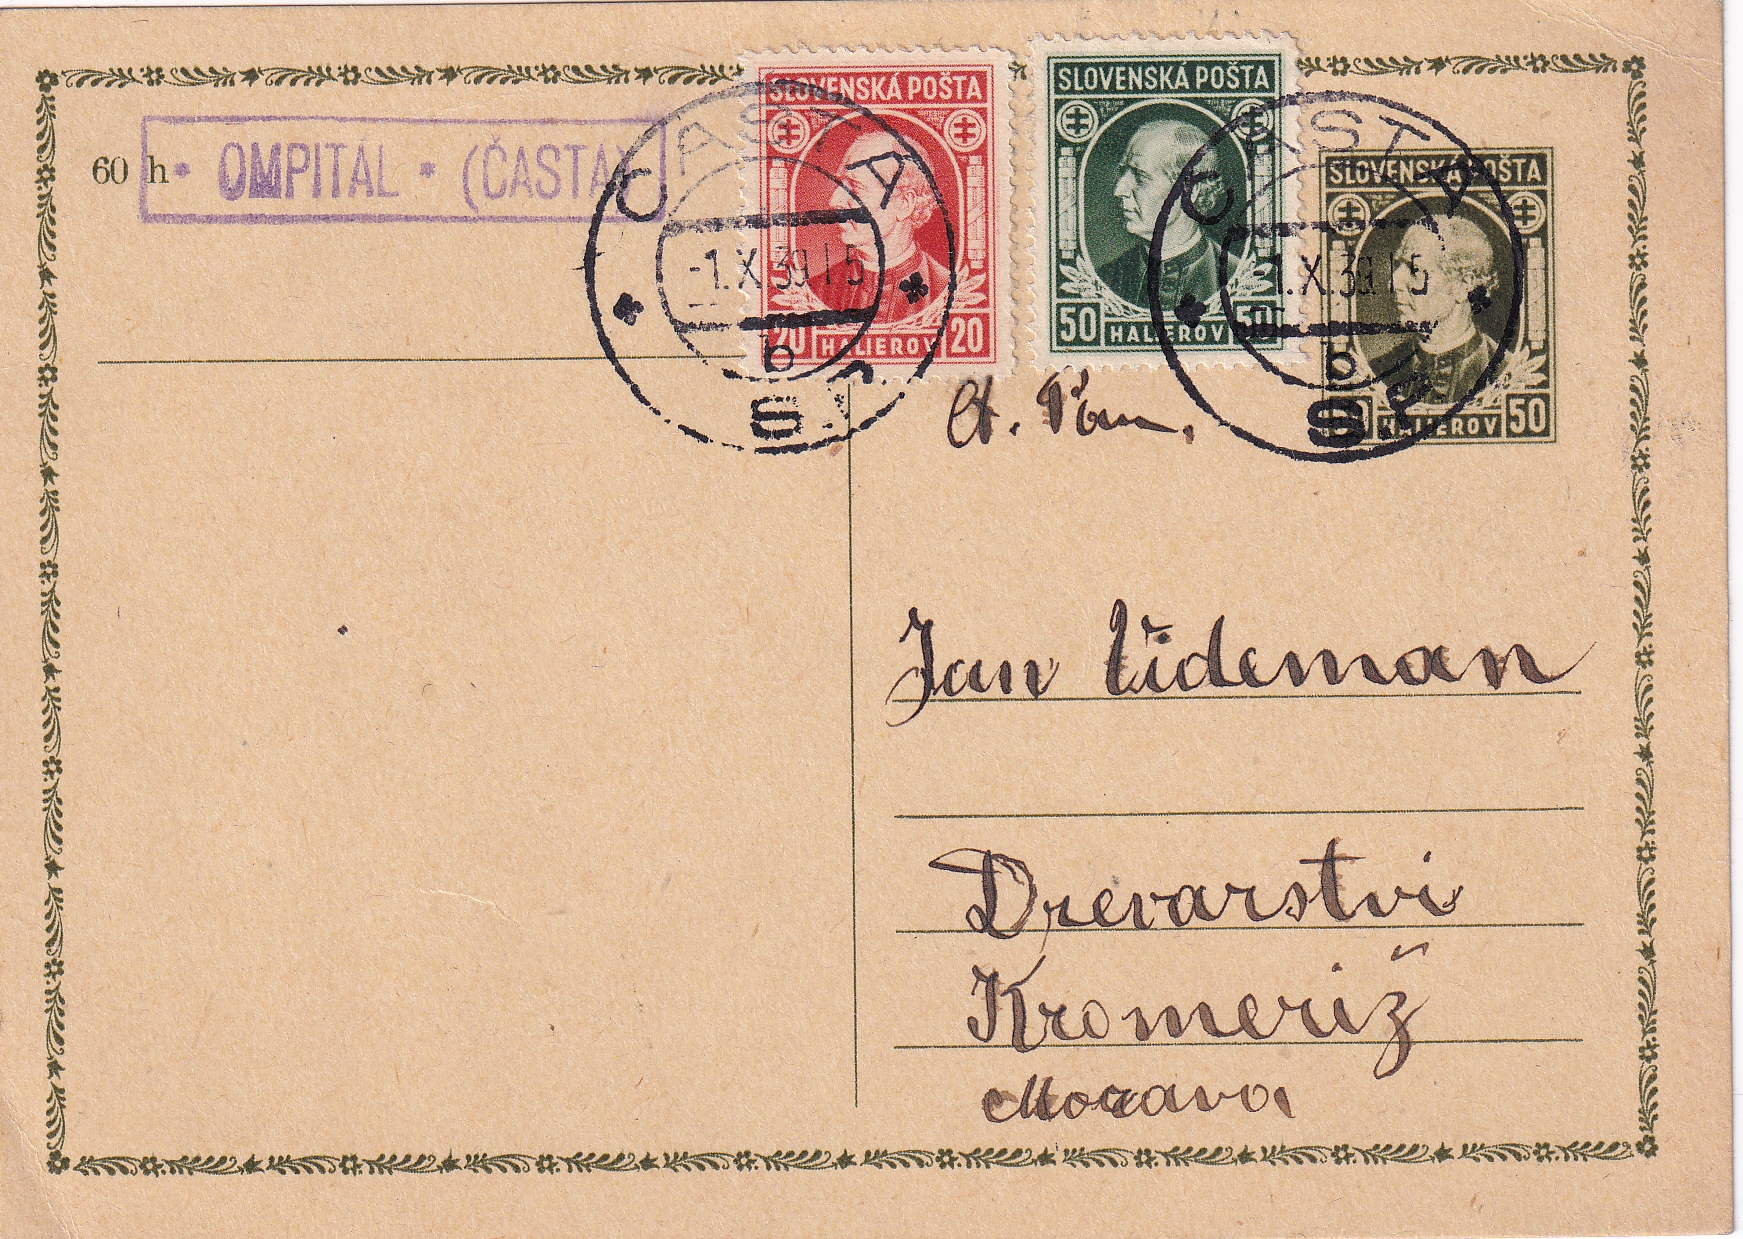 60 h
* OMPITÁL * (ČASTÁ)
SLOVENSKÁ POŠTA
20 HALIEROV 20
SLOVENSKÁ POŠTA
50 HALIEROV 50
SLOVENSKÁ POŠTA
50 HALIEROV 50
ČASTÁ
-1.X.39.15
b
ČASTÁ
-1.X.39.15
b
Ct. Pán.
Jan Vídeman
Drevarstvi
Kromeriž
Morava